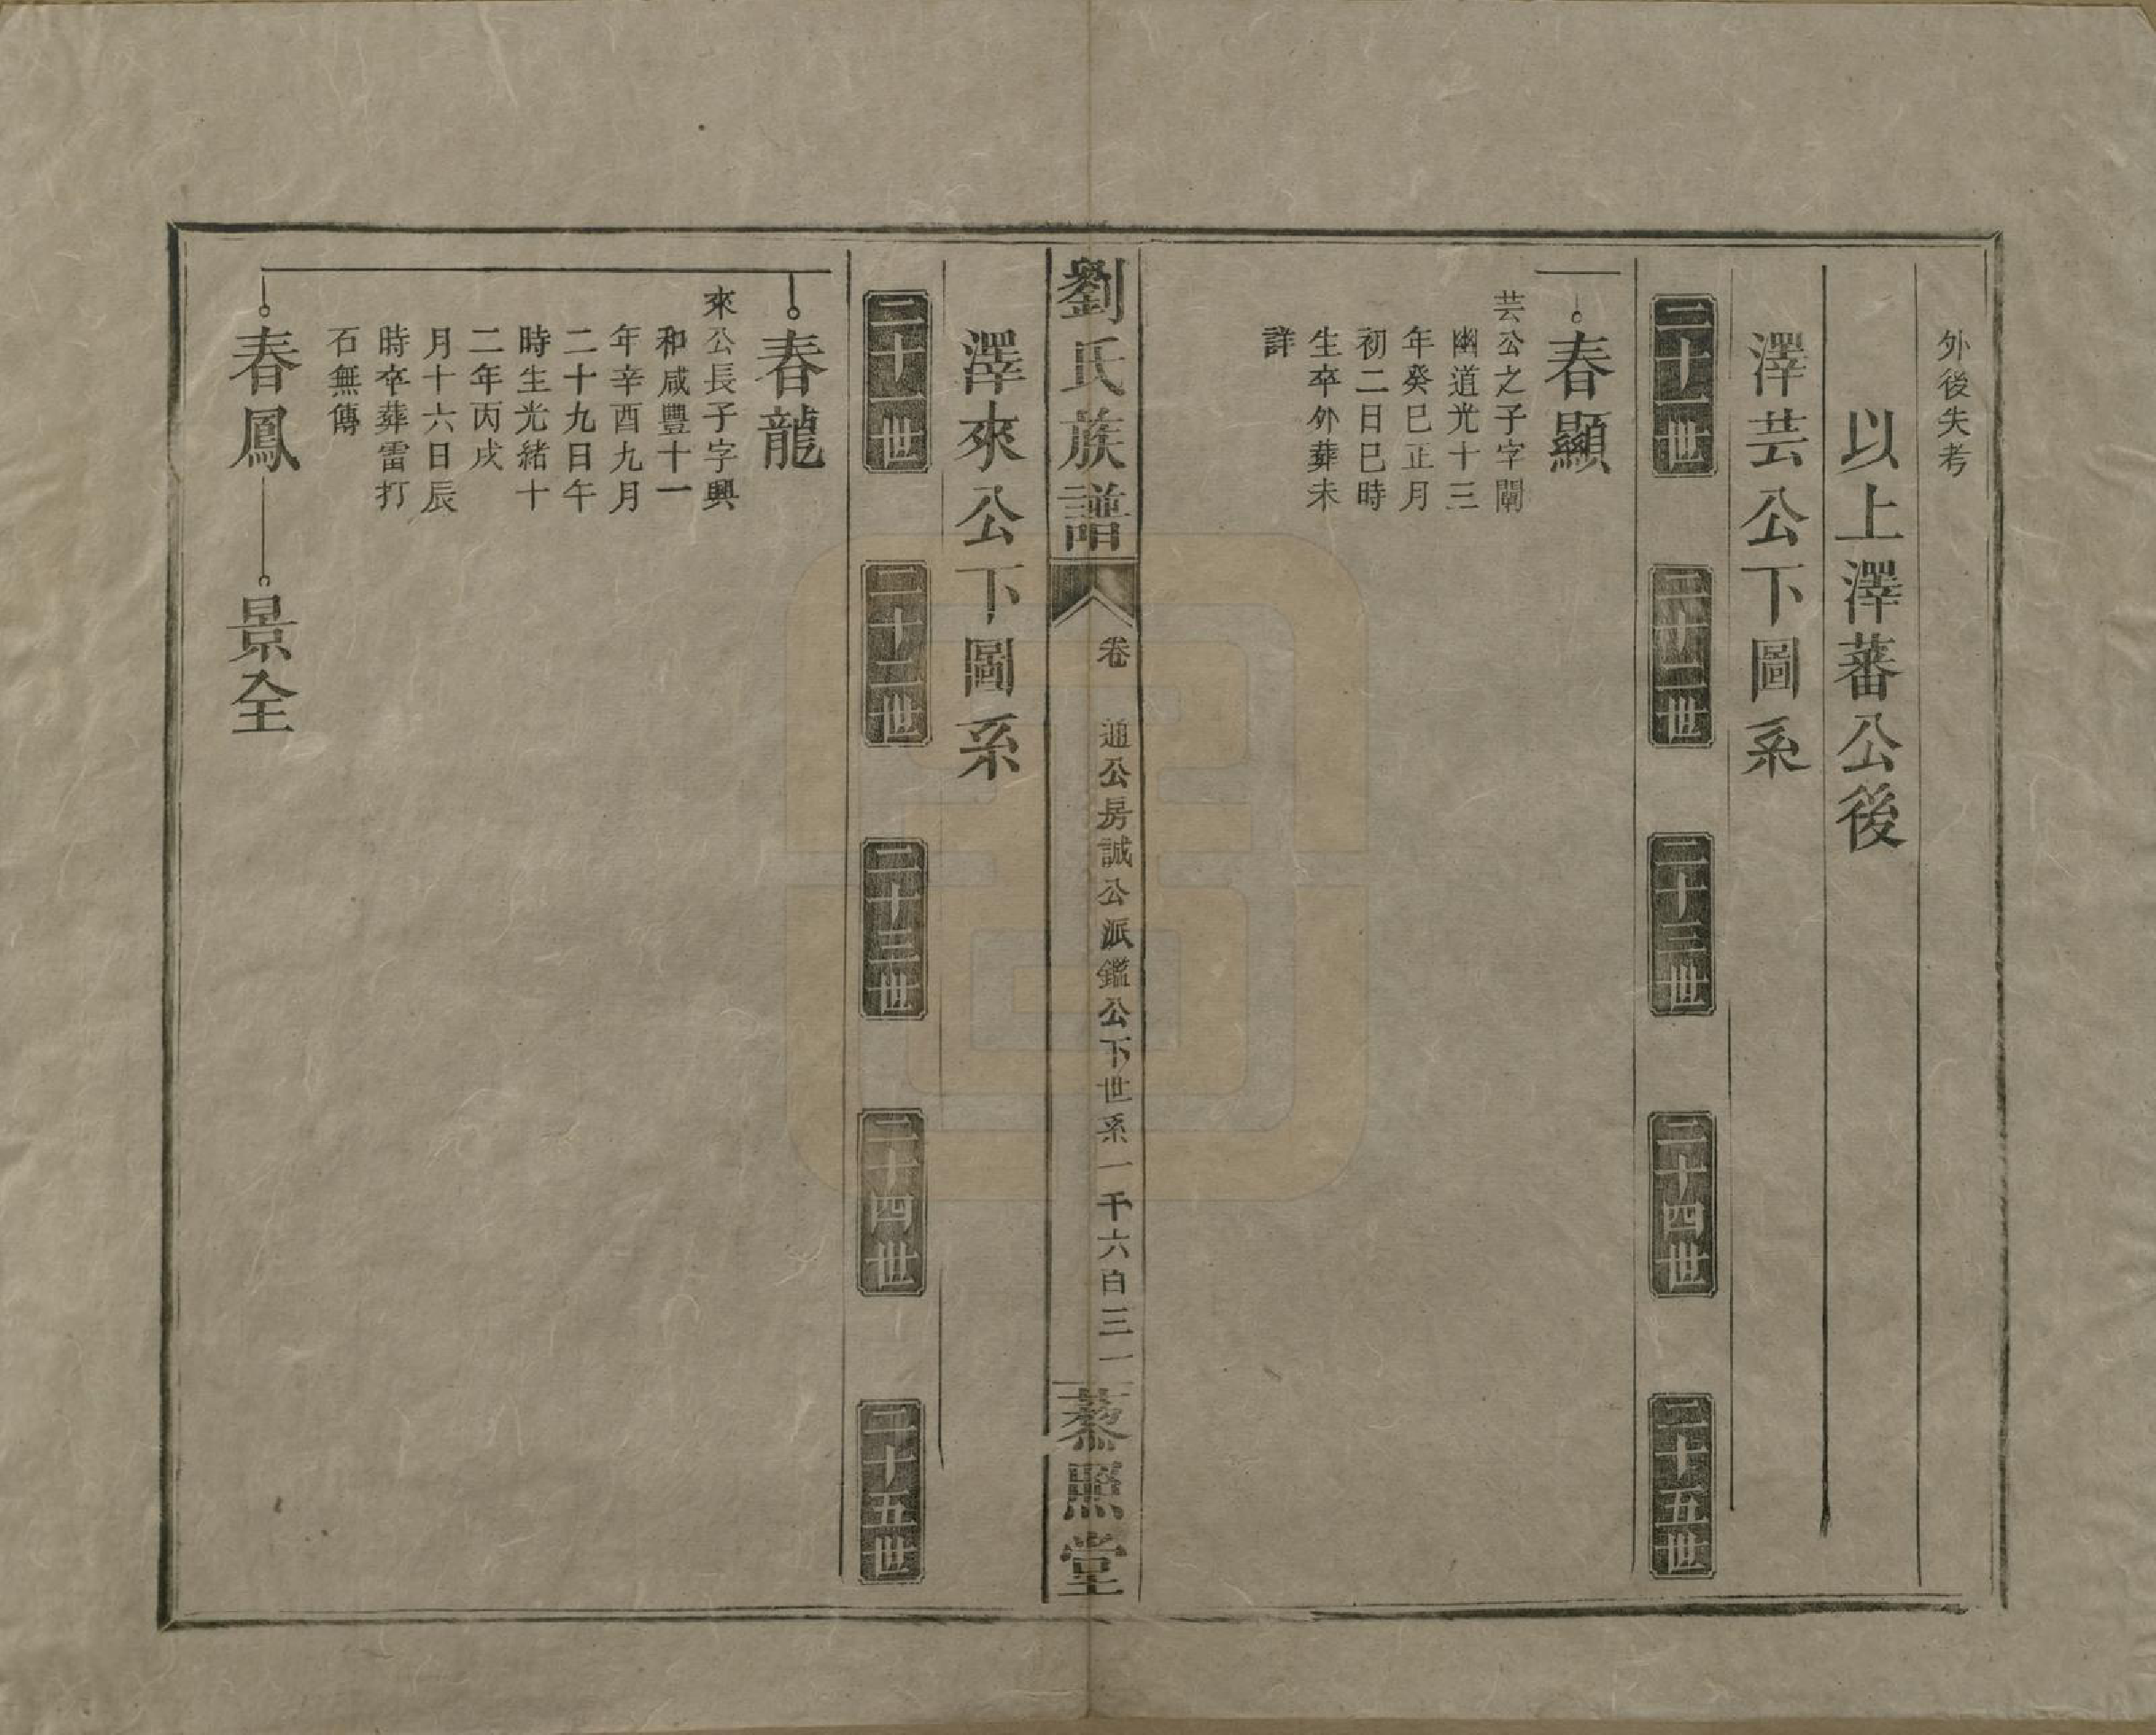 外後失考
以上澤蕃公後
澤芸公下圖系
二十一世
二十二世
二十三世
二十四世
二十五世
春顯
芸公之子字闡
幽道光十三
年癸巳正月
初二日巳時
生卒外葬未
詳
劉氏族譜
卷
通公房誠公派鑑公下世系
一千六百三一
藜照堂
澤來公下圖系
二十一世
二十二世
二十三世
二十四世
二十五世
春龍
來公長子字興
和咸豐十一
年辛酉九月
二十九日午
時生光緒十
二年丙戌
月十六日辰
時卒葬雷打
石無傳
春鳳
景全